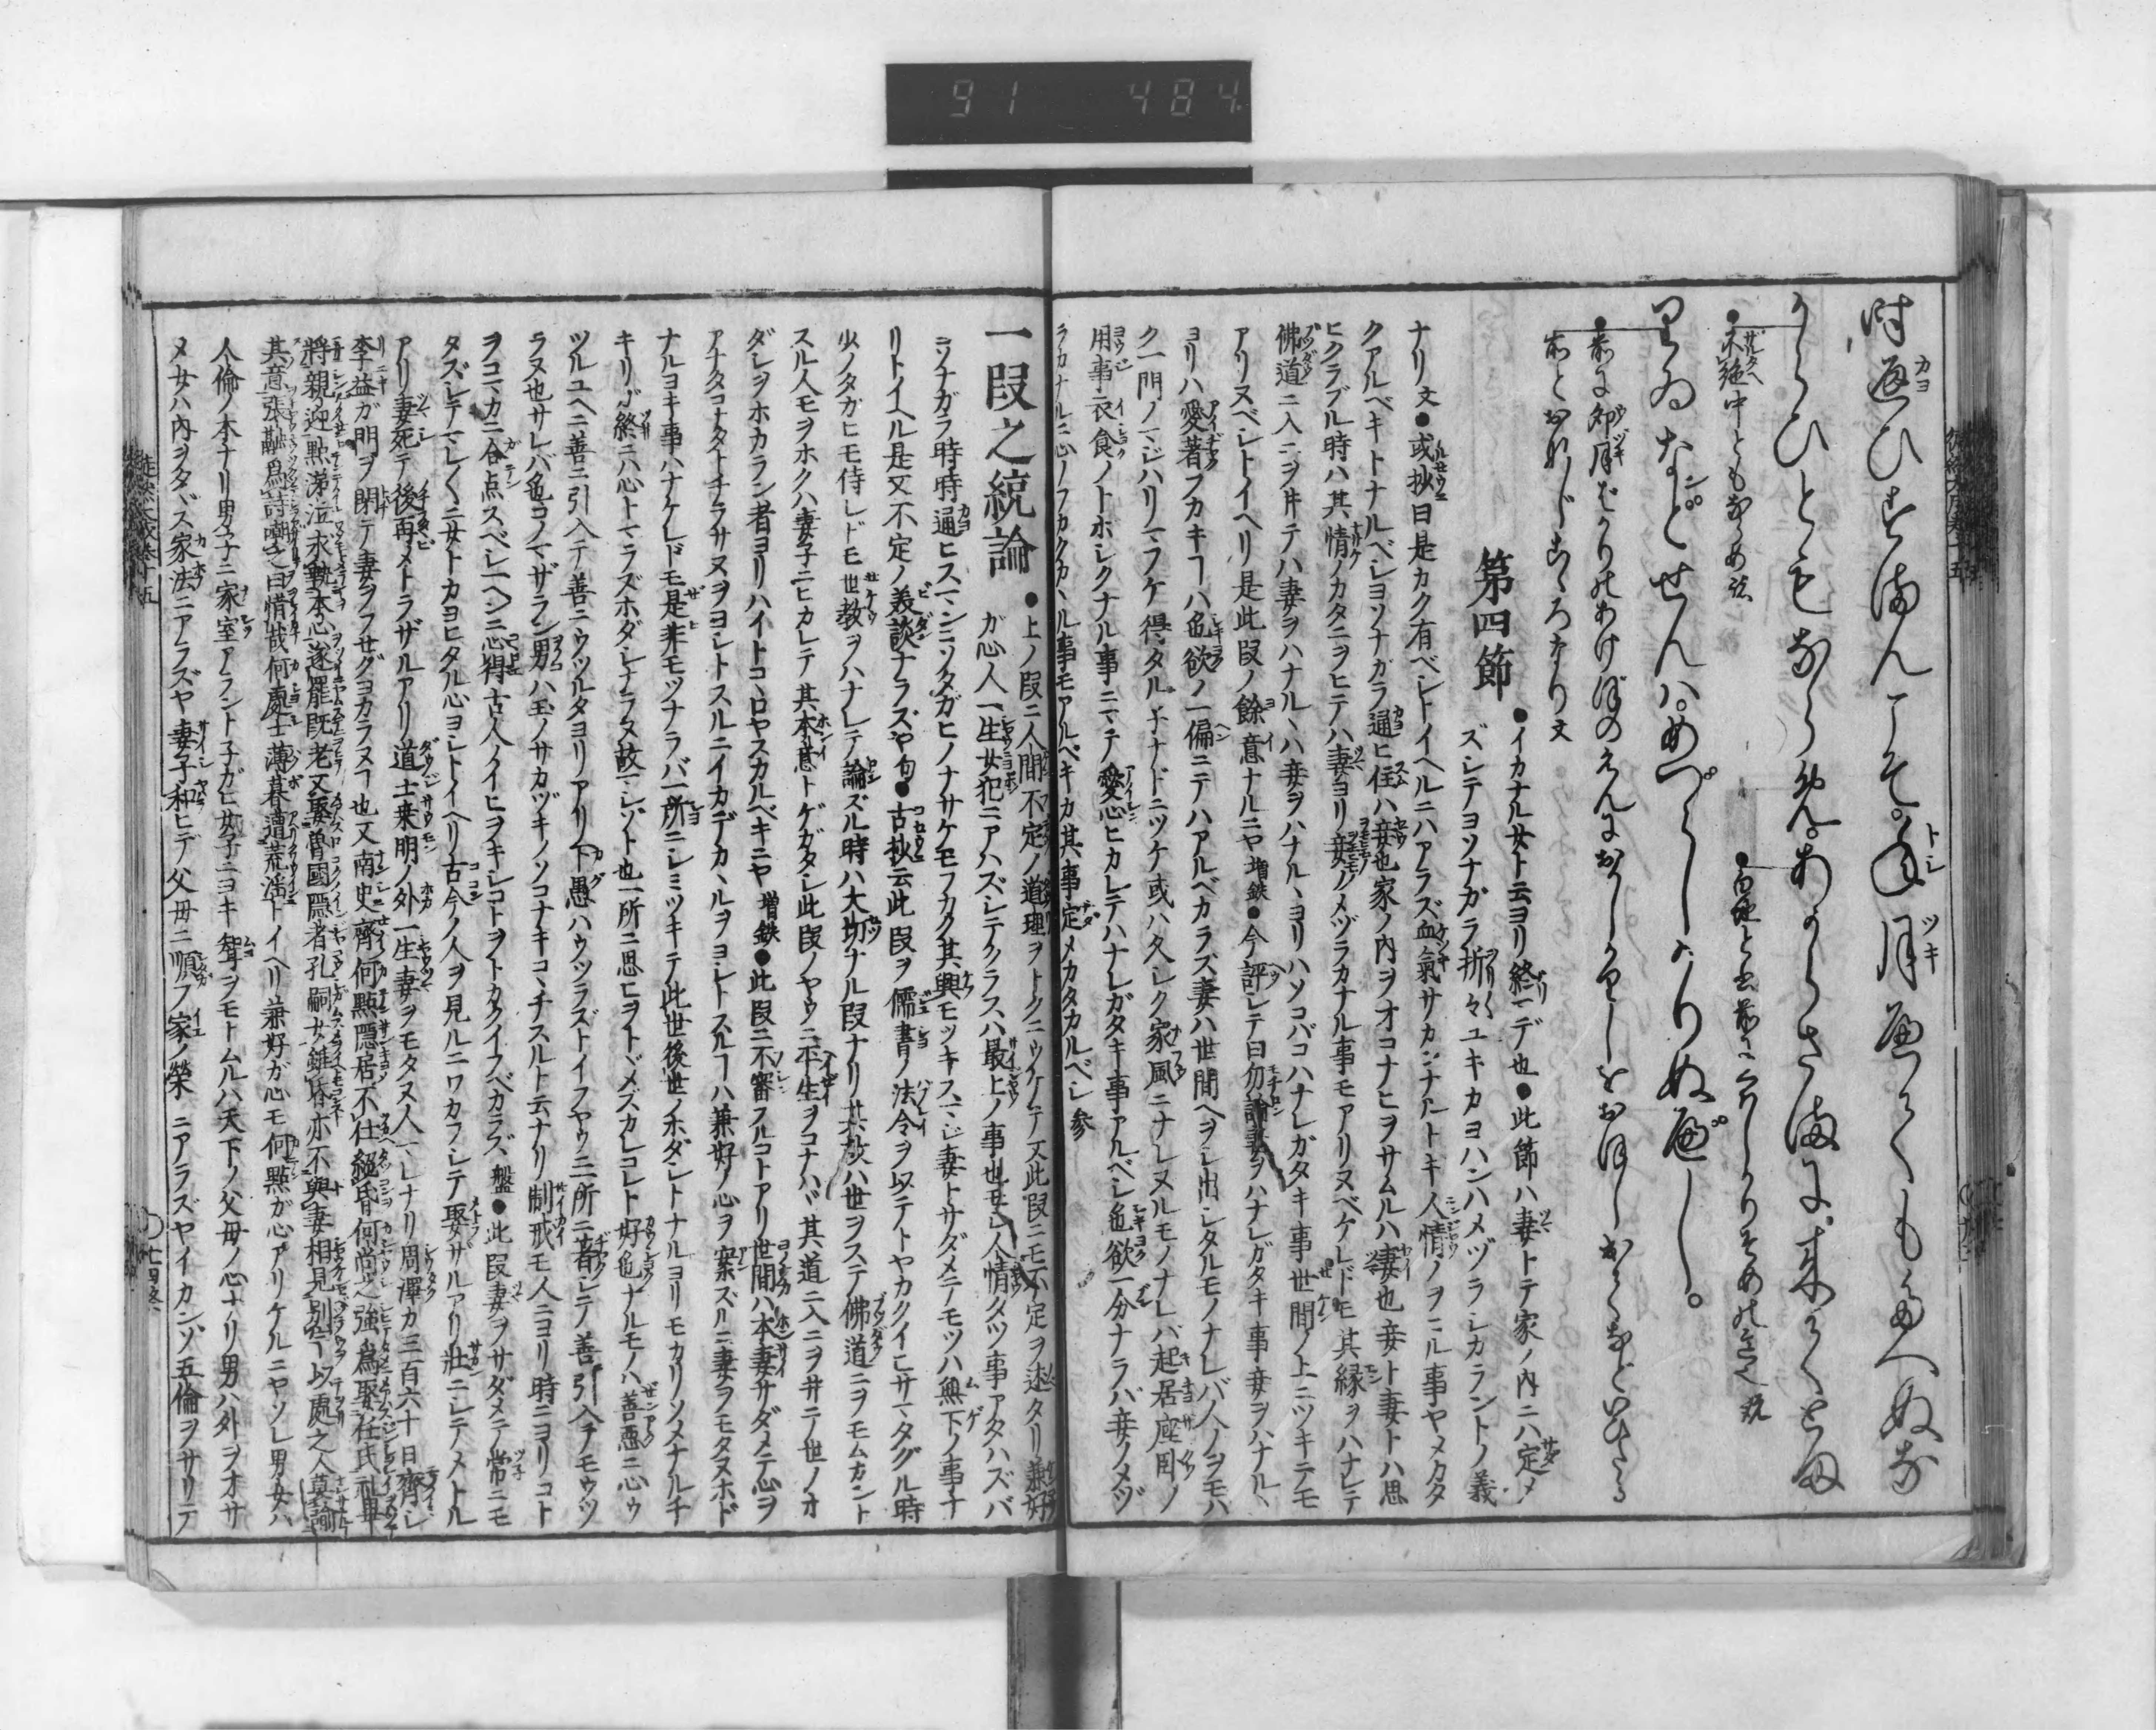 91 484
時〳〵通ひすまんこそ。年月へてもたへぬな
からひともならめ。あからさまに。来てとま
●不絶中ともならめ 諺
りゐなどせんハ。めづらしかりぬべし。
第四節
●イカナル女ト云ヨリ終マデ也●此節ハ妻トテ家ノ内ニハ定メ
ズシテヨソナガラ折々ユキカヨハンハメヅラシカラントノ義
ナリ文●或抄曰是カク有ベシトイヘルニハアラズ血氣サカンナルトキ人情ノヲコル事ヤメカタ
クアルベキトナルベシヨソナガラ通ヒ住ハ妾也家ノ内ヲオコナヒヲサムルハ妻也妾ト妻トハ思
ヒクラブル時ハ其情ノカタニヲヒテハ妻ヨリ妾ノメヅラカナル事モアリヌベケレドモ其縁ヲハナレテ
佛道ニ入ニヲ井テハ妻ヲハナルヽハ妾ヲハナルヽヨリハソコバコハナレガタキ事世間ノ上ニツキテモ
アリヌベシトイヘリ是此段ノ餘意ナルニヤ 増鉄●今評シテ曰勿論妻ヲハナレガタキ事妾ヲハナルヽ
ヨリハ愛著フカキヿハ色欲ノ一偏ニテハアルベカラズ妻ハ世間ヘヲシ出シタルモノナレバ人ノヲモハ
ク一門ノマジハリマフケ得タル子ナドニツケ或ハ久シク家風ニナレヌルモノナレバ起居座臥ノ
用事衣食ノトホシクナル事ニマテ愛心ヒカレテハナレガタキ事アルベシ色欲一分ナラバ妾ノメヅ
ラカナルニ心ノフカクカヽル事モアルベキカ其事定メカタカルベシ 参
一段之統論
●上ノ段ニ人間不定ノ道理ヲトクニウケテ又此段ニモ不定ヲ述タリ兼好
ガ心人一生女犯ニアハズシテクラスハ最上ノ事也若シ人情タツ事アタハズバ
ヨソナガラ時時通ヒスマンニシタガヒノナサケモフカク其興モツキスマジ妻トサダメテモツハ無下ノ事ナ
リトイヘル是又不定ノ美談ナラズヤ句●古抄云此段ヲ儒書ノ法令ヲ以テトヤカクイヒサマタグル時
少ノタガヒモ侍レドモ世教ヲハナレテ論ズル時ハ大切ナル段ナリ其故ハ世ヲステ佛道ニヲモムカント
スル人モヲホクハ妻子ニヒカレテ其本意トゲガタシ此段ノヤウニ平生ヲコナハヾ其道ニ入ニヲ井テ世ノホ
ダシヲホカラン者ヨリハイトコヽロヤスカルベキニヤ 増鉄●此段ニ不審フルコトアリ世間ハ本妻サダメテ心ヲ
アナタコナタトチラサヌヲヨシトスルニイカデカヽルヲヨシトスルヿハ兼好ノ心ヲ案ズルニ妻ヲモタヌホド
ナルヨキ事ハナケレドモ是非モツナラバ一所ニシミツキテ此世後世ノホダシトナルヨリモカリソメナルチ
ギリハ終ニハ心トマラズホダシナラヌ故マシゾト也一所ニ思ヒヲトヾメズカレコレト好色ナルモノハ善惡ニ心ウ
ツルユヘニ善ニ引入テ善ニウツルタヨリアリ下愚ハウツラズトイフヤウニ一所ニ著シテ善引入テモウツ
ラヌ也サレバ色コノマザラン男ハ玉ノサカヅキノソコナキコヽチスルト云ナリ制戒モ人ニヨリ時ニヨリコト
ヲコマカニ合点スベシ一ヘンニ心得古人ノイヒヲキシコトヲトカクイフベカラズ 盤●此段妻ヲサダメテ常ニモ
タズシテマレ〳〵ニ女トカヨヒタル心ヨシトイヘリ古今ノ人ヲ見ルニワカフシテ娶ザルアリ壯ニシテメトル
アリ妻死テ後再メトラザルアリ道士来明ノ外一生妻ヲモタヌ人マレナリ周澤カ三百六十日齊シ
李益ガ明ヲ閉テ妻ヲフセグヨカラヌヿ也又南史齊何點隱居不仕絕昏何尚之強爲娶任氏礼畢
將親迎點涕泣求執本心遂罷既老又娶魯國隱者孔嗣女雖昏亦不與妻相見別室以處之人莫諭
其意張融爲詩嘲之曰惜哉何處士薄暮遭荒淫トイヘリ兼好が心モ何點が心アリケルニヤソレ男女ハ
人倫ノ本ナリ男子ニ家室アラント子ガヒ女子ニヨキ聟ヲモトムルハ天下ノ父母ノ心ナリ男ハ外ヲオサ
メ女ハ内ヲタヾス家法ニアラズヤ妻子和ヒデ父母ニ順フ家ノ榮ニアラズヤイカンゾ五倫ヲサリテ